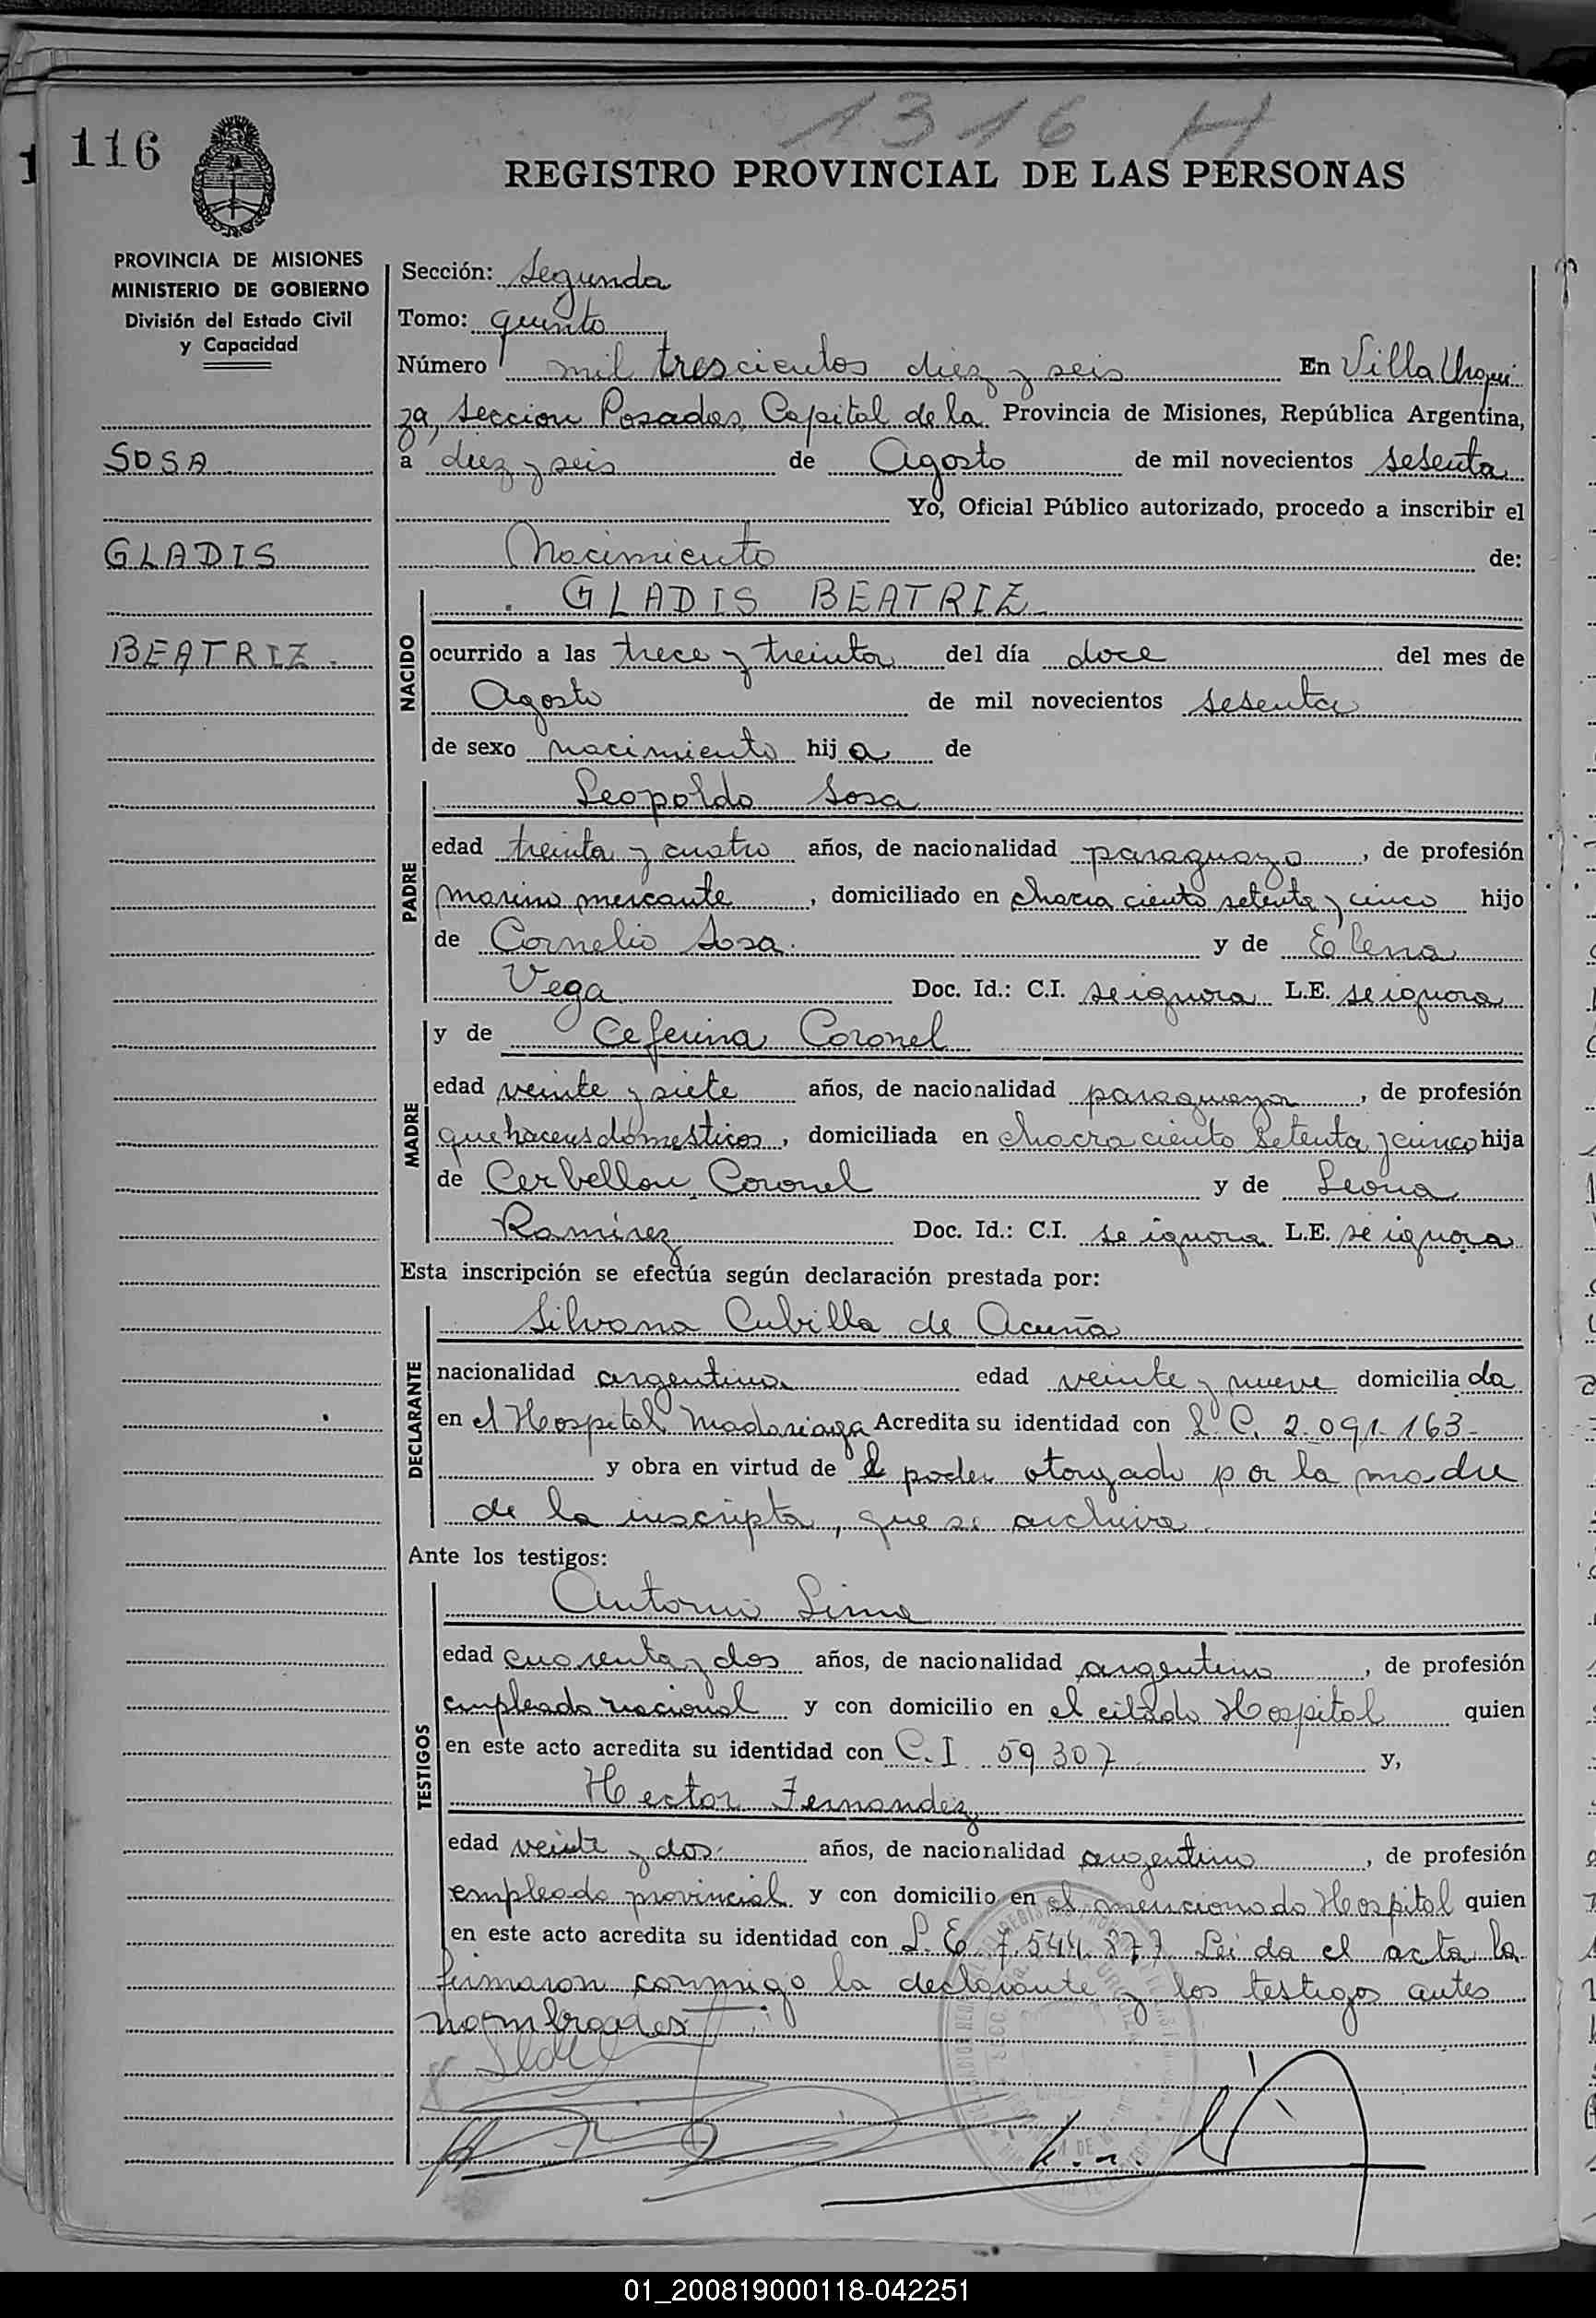 1316 H
116
REGISTRO PROVINCIAL DE LAS PERSONAS
PROVINCIA DE MISIONES
MINISTERIO DE GOBIERNO
División del Estado Civil
y Capacidad
SOSA
GLADIS
BEATRIZ.
Sección: Segunda
Tomo: quinto
Número mil trescientos diez y seis En Villa Urqui
za, seccion Posadas, Capital de la Provincia de Misiones, República Argentina,
a diez y seis de Agosto de mil novecientos sesenta
Yo, Oficial Público autorizado, procedo a inscribir el
Nacimiento de:
GLADIS BEATRIZ
NACIDO
ocurrido a las trece y treinta del día doce del mes de
Agosto de mil novecientos sesenta
de sexo nacimiento hija de
Leopoldo Sosa
PADRE
edad treinta y cuatro años, de nacionalidad paraguayo, de profesión
marino mercante, domiciliado en chacra ciento setenta y cinco hijo
de Cornelio Sosa. y de Elena
Vega Doc. Id.: C.I. se ignora L.E. se ignora
MADRE
y de Ceferina Coronel
edad veinte y siete años, de nacionalidad paraguaya, de profesión
quehaceres domesticos, domiciliada en chacra ciento setenta y cinco hija
de Cerbellon Coronel y de Leona
Ramirez Doc. Id.: C.I. se ignora L.E. se ignora
Esta inscripción se efectúa según declaración prestada por:
DECLARANTE
Silvana Cubilla de Acuña
nacionalidad argentina edad veinte y nueve domiciliada
en el Hospital Madariaga Acredita su identidad con L.C. 2.091.163-
y obra en virtud de el poder otorgado por la madre
de la inscripta, que se archiva
Ante los testigos:
TESTIGOS
Antonio Lima
edad cuarenta y dos años, de nacionalidad argentino, de profesión
empleado nacional y con domicilio en el citado Hospital quien
en este acto acredita su identidad con C.I. 59.307 y,
Hector Fernandez
edad veinte y dos. años, de nacionalidad argentino, de profesión
empleado provincial y con domicilio en el mencionado Hospital quien
en este acto acredita su identidad con L.E. 7.544.877 Leida el acta la
firmaron conmigo la declarante y los testigos antes
nombrados
01_200819000118-042251